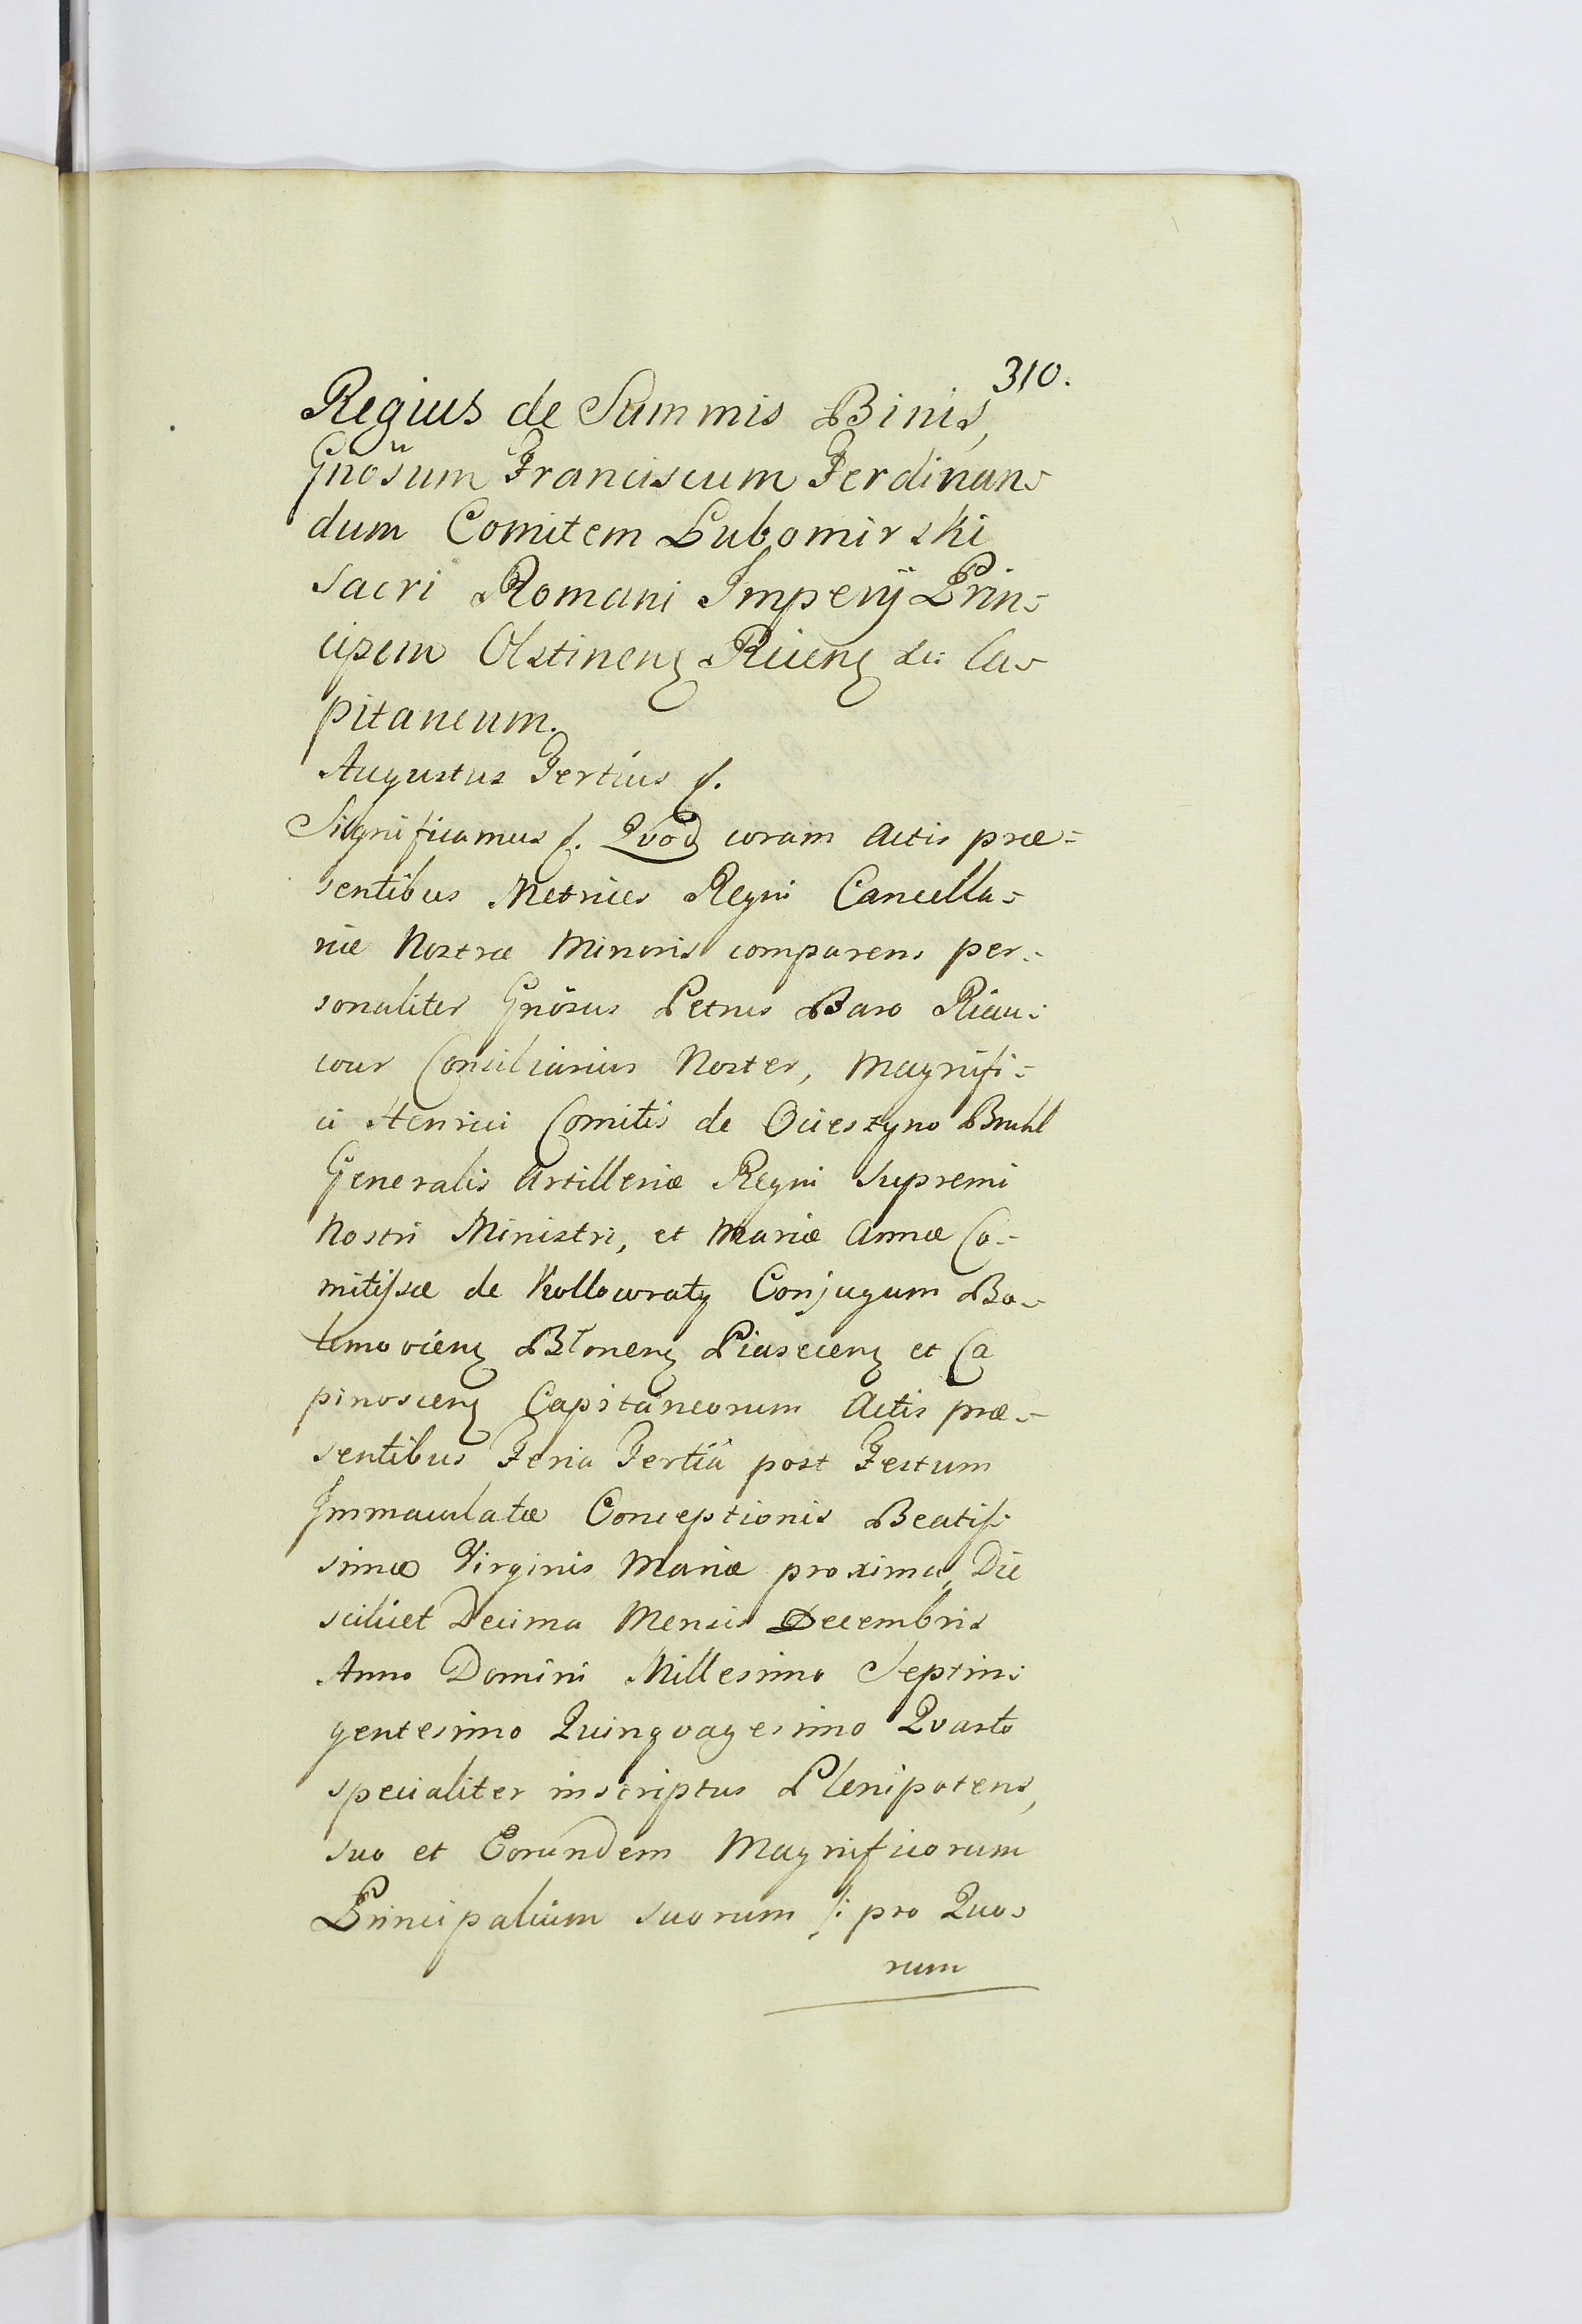 310.
Regius de Summis Binis,
Gnõsum Franciscum Ferdinan=
dum Comitem Lubomirski
Sacri Romani Imperij Prin=
cipem Olstinens Ricens &c: Ca=
pitaneum.
Augustus Tertius &.
Significamus &. Qvod coram Actis præ=
sentibus Metrices Regni Cancella=
riæ Nostræ Minoris comparens per=
sonaliter Gnõsus Petrus Baro Riau=
cour Consiliarius Noster, Magnifi=
ci Henrici Comitis de Ocieszyno Bruhl
Generalis Artilleriæ Regni Supremi
Nostri Ministri, et Mariæ Annæ Co=
mitissæ de Kollowraty Conjugum Bo=
limoviens Błonens Piasecens et Ca
pinoscens Capitaneorum Actis præ=
sentibus Feria Tertiâ post Festum
Immaculatæ Conceptionis Beatis=
simæ Virginis Mariæ proxima, Die
scilicet Decima Mensis Decembris
Anno Domini Millesimo Septin=
gentesimo Quinqvagesimo Qvarto
specialiter inscriptus Plenipotens,
suo et Eorundem Magnificorum
Principalium suorum /: pro Quo=
rum